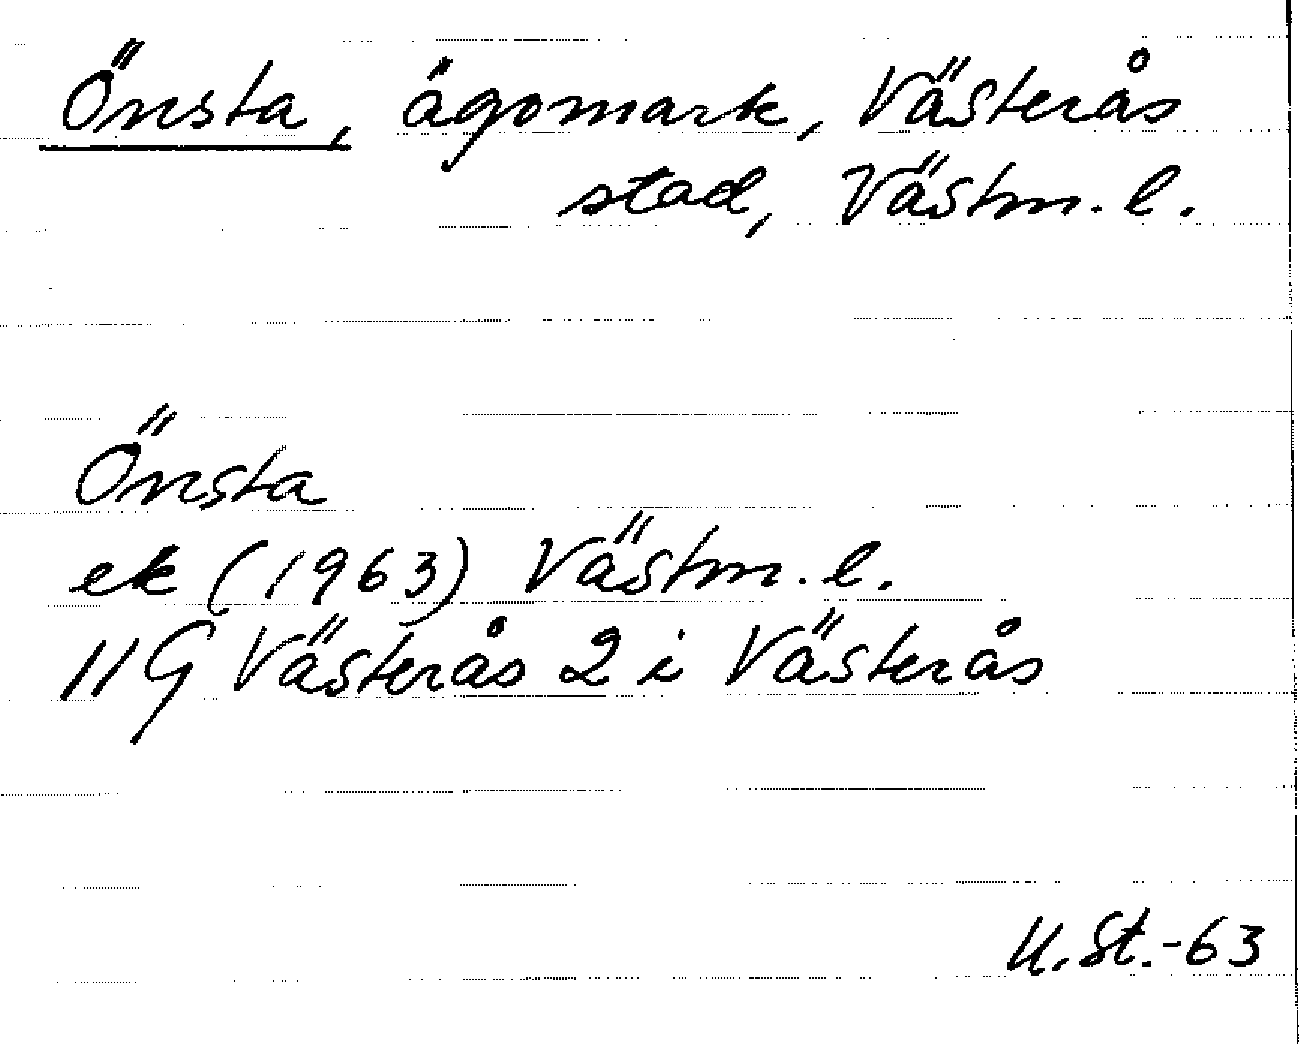 Önsta, ägomark, Västerås
stad, Västm. l.
Önsta
ek (1963) Västm. l.
11G Västerås 2 i Västerås
U.St.-63